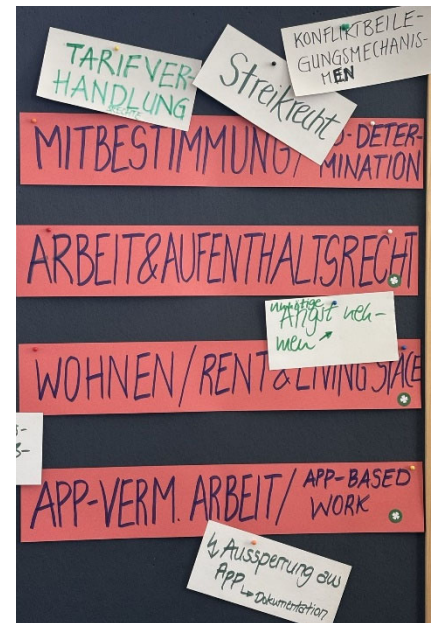 TARIFVER-
HANDLUNG
Streikrecht
KONFLIKTBEILE-
GUNGSMECHANIS-
MEN
MITBESTIMMUNG/
-DETER-
MINATION
ARBEIT&AUFENTHALTSRECHT
Angst neh-
men ↗
WOHNEN/RENT & LIVING SPACE
APP-VERM. ARBEIT/
APP-BASED
WORK
↯ Aussperrung aus
App
↳ Dokumentation